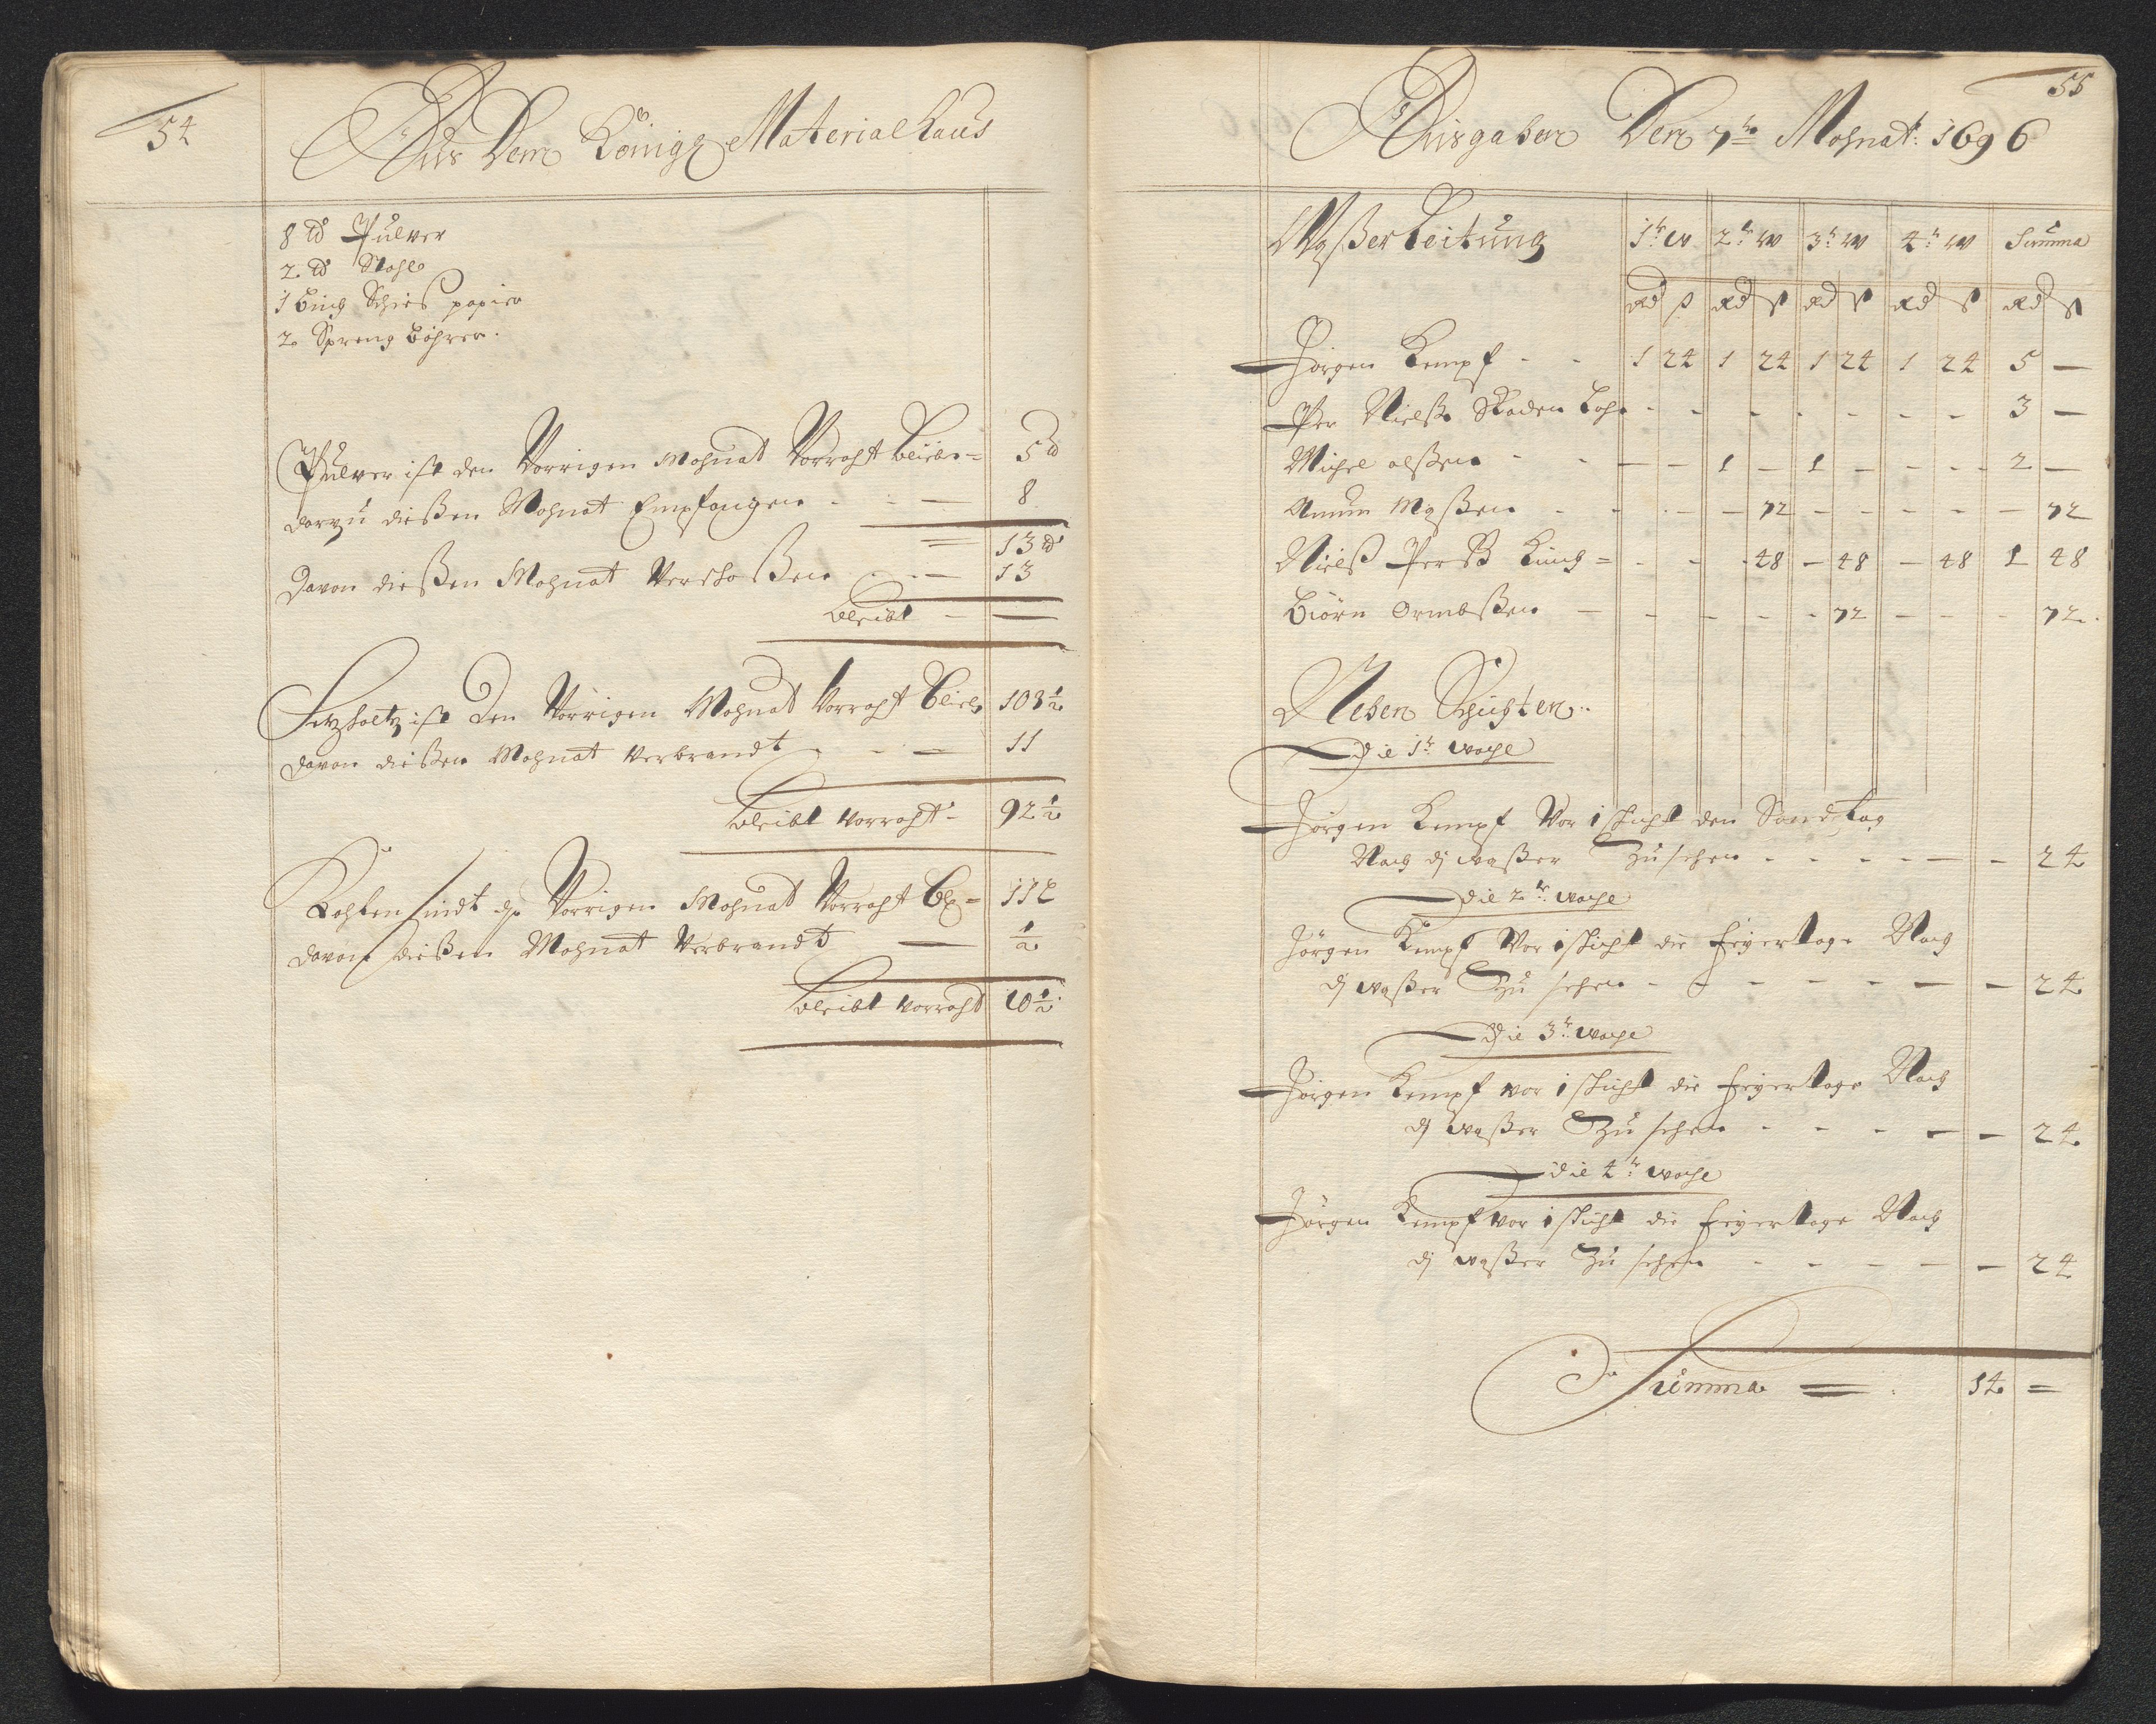 54
Aus Dem Königl Material Haus
8 ℔ Pulver
2 ℔ Stahl
1 buch Schies papier
2 Spreng bohrer.
Pulver ist den Vorrigen Mohnat Vorraht blieb = 5 ℔
darzu dießen Mohnat Empfangen - - — 8
= 13 ℔
Davon dießen Mohnat Verschoßen - - — 13
bleibt - —
Setzholtz ist den Vorrigen Mohnat Vorraht blieb 103½
davon dießen Mohnat Verbrandt - - — 11
bleibt Vorraht - 92½
Kohlen sindt Vorrigen Mohnat Vorraht bl = 11 L
davon dießen Mohnat Verbrandt — ½
bleibt Vorraht 10½
55
Ausgaben Den 7tn Mohnat: 1696
Waßer Leitung 1te W 2te W 3te W 4te W Summa
Rd ß Rd ß Rd ß Rd ß Rd ß
Jörgen Kempf - - 1 24 1 24 1 24 1 24 5 —
Per Nielß: Skaden Lohn - - - - - - - 3 —
Michel olßen - - — - 1 - 1 - - - - 2 —
Amun Maßen - - - - - 72 - - - - - 72
Nielß Perß Ling = - - - 48 - 48 - 48 1 48
Biörn Ormbßen - - - - - 72 - - - 72.
Neben Schichten..
Die 1te woche
Jörgen Kempf Vor 1 schicht den Sondtag
Nach dz waßer Zu sehen - - - - — - 24
Die 2te woche
Jörgen Kempf Vor 1 schicht die feyertage Nach
dz waßer Zu sehen - - - - - — - 24
Die 3te woche
Jörgen Kempf vor 1 schicht die feyertage Nach
dz waßer Zu sehen - - - — — 24
die 4te woche
Jörgen Kempf vor 1 schicht die feyertage Nach
dz waßer Zu sehen - - - — — 24
Summa = : 14 =